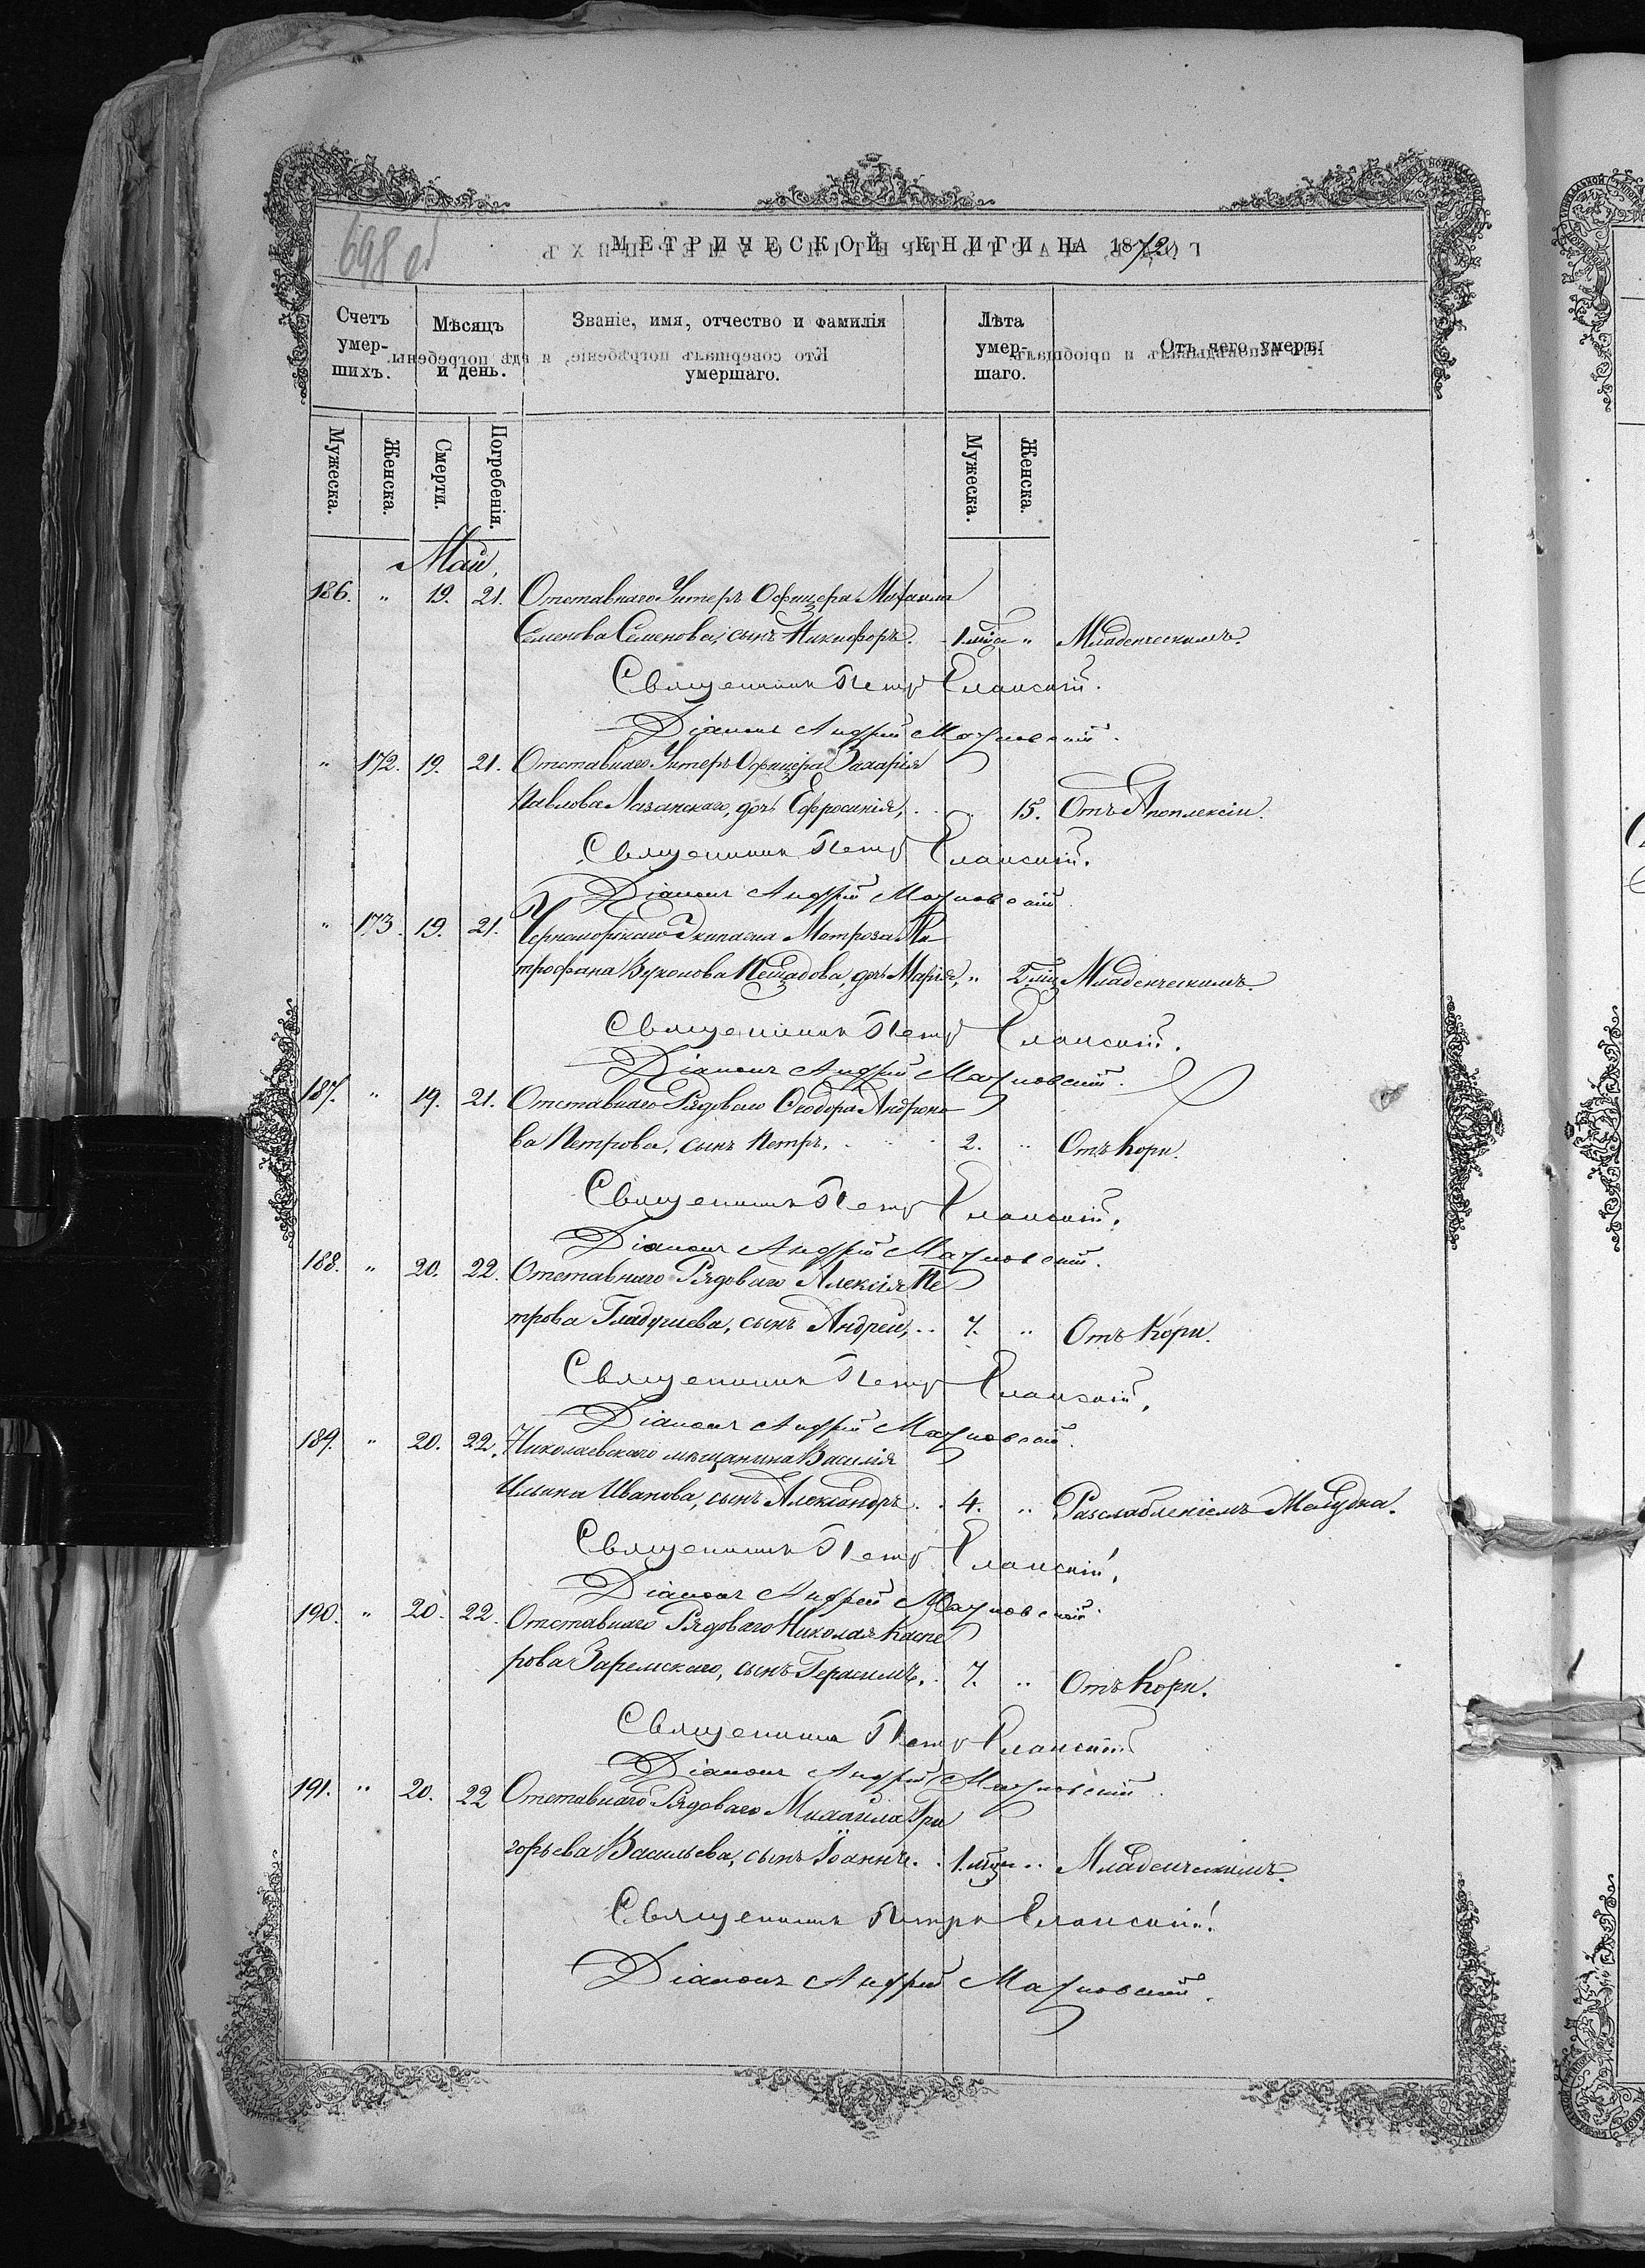 698 об
МЕТРИЧЕСКОЙ КНИГИ НА 1872
Счетъ умер-шихъ. Мѣсяцъ и день. Званіе, имя, отчество и фамилія умершаго. Лѣта умер-шаго. Отъ чего умеръ
Мужеска. Женска. Смерти. Погребенія. Мужеска. Женска.
Май,
186. " 19. 21. Отставнаго Унтеръ Офицера Михаила
Семенова Семенова, сынъ Никифоръ. 1 мѣс " Младенческимъ.
Священникъ Петръ Еланскій.
Діаконъ Андрей
" 172. 19. 21. Отставнаго Унтеръ Офицера Захарія
Павлова Лазанскаго, дочь Ефросинія, " 15. Отъ Апоплексіи.
Священникъ Петръ Еланскій.
Діаконъ Андрей
" 173. 19. 21. Черноморскаго Экипажа Матроза Ми
трофана дочь Марія, " 2 мѣс Младенческимъ.
Священникъ Петръ Еланскій.
Діаконъ Андрей
187. " 19. 21. Отставнаго Рядоваго Ѳеодора Андроно
ва Петрова, сынъ Петръ. 2. " Отъ Кори.
Священникъ Петръ Еланскій.
Діаконъ Андрей
188. " 20. 22. Отставнаго Рядоваго Алексія Пе
трова сынъ Андрей, 7. " Отъ Кори.
Священникъ Петръ Еланскій.
Діаконъ Андрей
189. " 20. 22. Николаевскаго мѣщанина Василія
Ильина Иванова, сынъ Александръ. 4. " Разслабленіемъ Желудка.
Священникъ Петръ Еланскій.
Діаконъ Андрей
190. " 20. 22. Отставнаго Рядоваго Николая Каспе
рова Заремскаго, сынъ Герасимъ. 7. " Отъ Кори.
Священникъ Петръ Еланскій
Діаконъ Андрей
191. " 20. 22 Отставнаго Рядоваго Михаила Гри
горьева Васильева, сынъ Іоаннъ. 1 мѣс " Младенческимъ.
Священникъ Петръ Еланскій.
Діаконъ Андрей